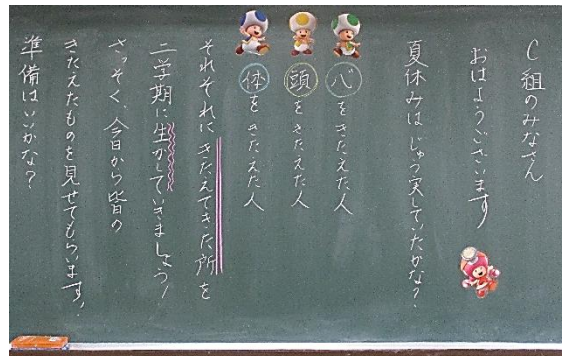 C組のみなさん
おはようございます
夏休みはじゅう実していたかな?
心をきたえた人
頭をきたえた人
体をきたえた人
それぞれにきたえてきた所を
二学期に生かしていきましょう!
さっそく、今日から皆の
きたえたものを見せてもらいます!
準備はいいかな?